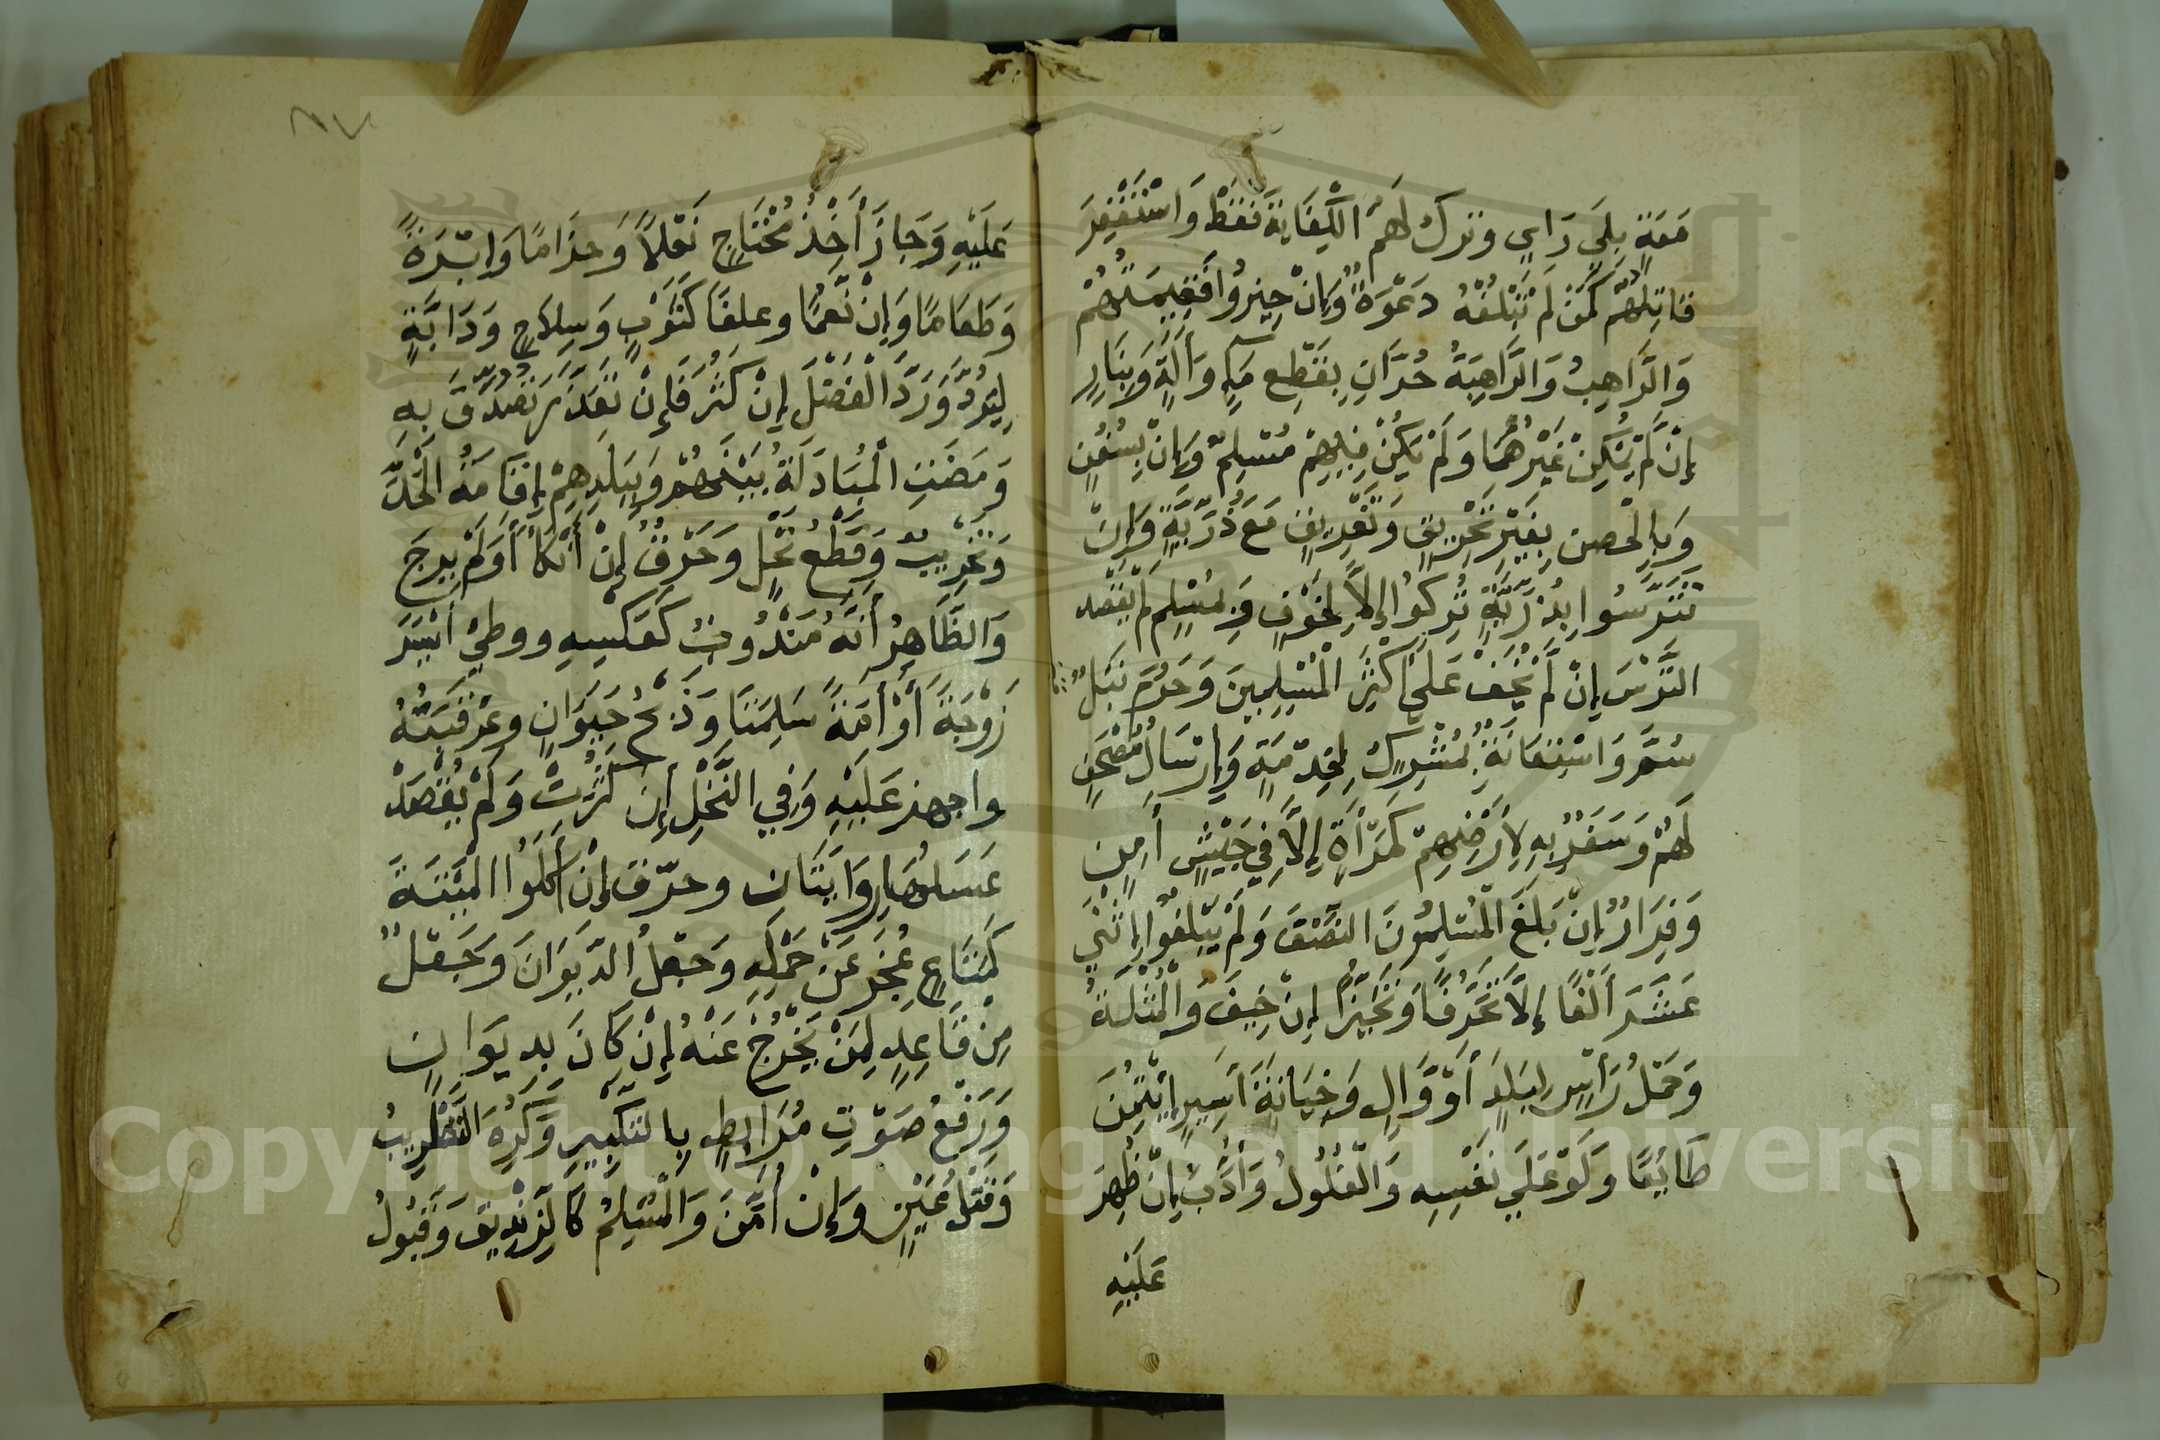 مَعَهُ بِلَي رَايٍ وترك لَهُمْ الْكِفَايَةَ فَقَطْ وَاسْتَغْفِرَ
قَاتِلُهُمْ كَمَنْ لَمْ تَبْلُغْهُ دَعْوَةٌ وَإِنْ حِيزُوا فَقِيمَتُهُمْ
وَالرَّاهِبُ وَالرَّاهِبَةُ حُرَّانِ بِقَطْعِ مَاءٍ وَآلَةٍ وَبِنَارٍ
إِنْ لَمْ يُمْكِنْ غَيْرُهُمَا وَلَمْ يَكُنْ فِيهِمْ مُسْلِمٌ وَإِنْ بِسُفُنٍ
وَبِالْحِصْنِ بِغَيْرِ تَحْرِيقٍ وَتَغْرِيقٍ مَعَ ذُرِّيَّةٍ وَإِنْ
تَتَرَّسُوا بِذُرِّيَّةٍ تُرِكُوا إِلاَّ لِخَوْفٍ وَبِمُسْلِمٍ لَمْ يُقْصَدِ
التُّرْسَ إِنْ لَمْ يُخَفْ عَلَى أَكْثَرِ الْمُسْلِمِينَ وَحَرُمَ نَبْلٌ
سُمَّ وَاسْتِعَانَةٌ بِمُشْرِكٍ لِخِدْمَةٍ وَإِرْسَالُ مُصْحَفٍ
لَهُمْ وَسَفَرٌ بِهِ لِأَرْضِهِمْ كَمَرْأَةٍ إِلاَّ فِي جَيْشٍ أَمِنَ
وَفِرَارٌ إِنْ بَلَغَ الْمُسْلِمُونَ النِّصْفَ وَلَمْ يَبْلُغُوا اثْنَيْ
عَشَرَ أَلْفًا إِلاَّ تَحَرُّفًا وَتَحَيُّزًا إِنْ خِيفَ وَالْمُثْلَةُ
وَحَمْلُ رَأْسٍ لِبَلَدٍ أَوْ وَالٍ وَخِيَانَةُ أَسِيرٍ ائْتُمِنَ
طَائِعًا وَلَوْ عَلَى نَفْسِهِ وَالْغُلُولُ وَأُدِّبَ إِنْ ظُهِرَ
عَلَيْهِ
٨٧
عَلَيْهِ وَجَازَ أَخْذُ مُحْتَاجٍ نَعْلاً وَحِزَامًا وَإِبْرَةً
وَطَعَامًا وَإِنْ نَعَمًا وعلفًا كَثَوْبٍ وَسِلاَحٍ وَدَابَّةٍ
لِيَرُدَّ وَرَدَّ الْفَضْلَ إِنْ كَثُرَ فَإِنْ تَعَذَّرَ تَصَدَّقَ بِهِ
وَمَضَتِ الْمُبَادَلَةُ بَيْنَهُمْ وَبِبَلَدِهِمْ إِقَامَةُ الْحَدِّ
وَتَخْرِيبٌ وَقَطْعُ نَخْلٍ وَحَرْقٌ إِنْ أَنْكَأَ أَوْ لَمْ يُرجَ
وَالظَّاهِرُ أَنَّهُ مَنْدُوبٌ كَعَكْسِهِ ووطئ أَسِيرٍ
زَوْجَةً أَوْ أَمَةً سَلِمَتَا وَذَبْحُ حَيَوَانٍ وعَرْقَبَتُهُ
واجهز عَلَيْهِ وَفِي النَّحْلِ إِنْ كَثُرَتْ وَلَمْ يُقْصَدْ
عَسَلُهَا رِوَايَتَانِ وحرّق إِنْ أَكَلُوا الْمَيْتَةَ
كَمَتَاعٍ عُجِزَ عَنْ حَمْلِهِ وَجَعْلُ الدِّيوَانَ وَجَعْلٌ
مِنْ قَاعِدٍ لِمَنْ يَخْرُجُ عَنْهُ إِنْ كَانَ بِدِيوَانٍ
وَرَفْعُ صَوْتِ مُرَابِطٍ بِالتَّكْبِيرِ وَكُرِهَ التَّطْرِيبُ
وَقَتْلُ عَيْنٍ وَإِنْ أُمِّنَ وَالْمُسْلِمُ كَالزِّنْدِيقِ وَقَبُولُ
Copyright © King Saud University